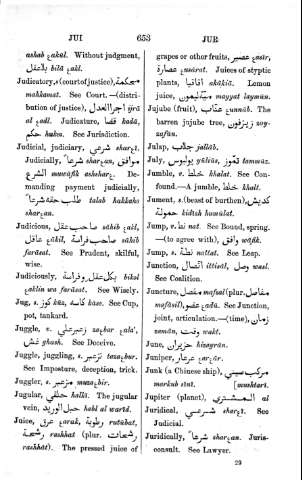 JUI 653 JUR
ashab ɛakul. Without judgment,
بلاعقل bilá ɛakl.
Judicatory, s (court of justice), محكمة
mahkamat. See Court.—(distri-
bution of justice), اجرا العدل ijrá
al ɛadl. Judicature, قضا kaza,
حكم hukm. See Jurisdiction.
Judicial, judiciary, شرعي sharɛi.
Judicially, شرعاً sharɛan, موافق
الشرع muwáfik ashsharɛ. De-
manding payment judicially,
طلب حقه شرعاً talab hakkaho
sharɛan.
Judicious, صاحب عقل sáhib ɛakl,
عاقل ɛákil, صاحب فراسة sáhib
farásat. See Prudent, skilful,
wise.
Judiciously, بكل عقل وفراسة bikol
ɛaklin wa farásat. See Wisely.
Jug, s. كوز kúz, كاسة káse. See Cup,
pot, tankard.
Juggle, v. زعبر علي zaɛbar ɛala',
غش ghash. See Deceive.
Juggle, juggling, s. تزعبر tezaɛbur.
See Imposture, deception, trick.
Juggler, s. مزعبر muzaɛbir.
Jugular, حلقي halki. The jugular
vein, حبل الوريد habl al waríd.
Juice, عرق ɛarak, رطوبة rutúbat,
رشحة rashhat (plur. رشحات
rashhát). The pressed juice of
grapes or other fruits, عصير ɛasír,
عصارة ɛusárat. Juices of styptic
plants, اقاقيا akákia. Lemon
juice, مية ليمون mayyat laymún.
Jujube (fruit), عناب ɛunnáb. The
barren jujube tree, زيزفون zay-
zafun.
Julap, جلاب jalláb.
July, يوليوس yúliús, تموز tammúz.
Jumble, v. خلط khalat. See Con-
found.—A jumble, خلط khalt.
Jument, s. (beast of burthen), كديش
حمولة kidish hamúlat.
Jump, v. نط nat. See Bound, spring.
—(to agree with), وافق wáfik.
Jump, s. نطة nattat. See Leap.
Junction, اتصال ittisál, وصل wasl.
See Coalition.
Juncture, مفصل mafsal (plur. مفاصل
mafásil), عضو ɛadú. See Junction,
joint, articulation.—(time), زمان
zamán, وقت wakt.
June, حزيران hizayrán.
Juniper, عرعار ɛarɛár.
Junk (a Chinese ship), مركب سيني
markub síní. [mushtari.
Jupiter (planet), المشتري al
Juridical, شرعي sharɛí. See
Judicial.
Juridically, شرعاً sharɛan. Juris-
consult. See Lawyer.
29